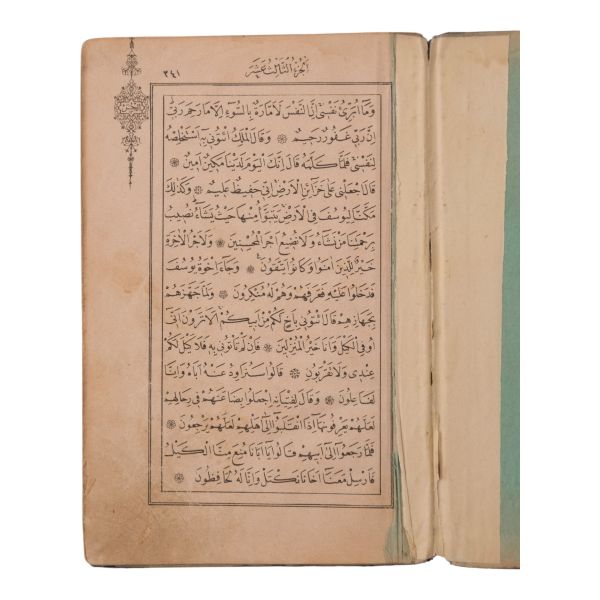 ٣٤١ الجزء الثالث عشر
وَمَا أُبَرِّئُ نَفْسِي إِنَّ النَّفْسَ لَأَمَّارَةٌ بِالسُّوءِ إِلَّا مَا رَحِمَ رَبِّي
إِنَّ رَبِّي غَفُورٌ رَحِيمٌ ❁ وَقَالَ الْمَلِكُ ائْتُونِي بِهِ أَسْتَخْلِصْهُ
لِنَفْسِي فَلَمَّا كَلَّمَهُ قَالَ إِنَّكَ الْيَوْمَ لَدَيْنَا مَكِينٌ أَمِينٌ ❁
قَالَ اجْعَلْنِي عَلَى خَزَائِنِ الْأَرْضِ إِنِّي حَفِيظٌ عَلِيمٌ ❁ وَكَذَلِكَ
مَكَّنَّا لِيُوسُفَ فِي الْأَرْضِ يَتَبَوَّأُ مِنْهَا حَيْثُ يَشَاءُ نُصِيبُ
بِرَحْمَتِنَا مَنْ نَشَاءُ وَلَا نُضِيعُ أَجْرَ الْمُحْسِنِينَ ❁ وَلَأَجْرُ الْآخِرَةِ
خَيْرٌ لِلَّذِينَ آمَنُوا وَكَانُوا يَتَّقُونَ ❁ وَجَاءَ إِخْوَةُ يُوسُفَ
فَدَخَلُوا عَلَيْهِ فَعَرَفَهُمْ وَهُمْ لَهُ مُنْكِرُونَ ❁ وَلَمَّا جَهَّزَهُمْ
بِجَهَازِهِمْ قَالَ ائْتُونِي بِأَخٍ لَكُمْ مِنْ أَبِيكُمْ أَلَا تَرَوْنَ أَنِّي
أُوفِي الْكَيْلَ وَأَنَا خَيْرُ الْمُنْزِلِينَ ❁ فَإِنْ لَمْ تَأْتُونِي بِهِ فَلَا كَيْلَ لَكُمْ
عِنْدِي وَلَا تَقْرَبُونِ ❁ قَالُوا سَنُرَاوِدُ عَنْهُ أَبَاهُ وَإِنَّا
لَفَاعِلُونَ ❁ وَقَالَ لِفِتْيَانِهِ اجْعَلُوا بِضَاعَتَهُمْ فِي رِحَالِهِمْ
لَعَلَّهُمْ يَعْرِفُونَهَا إِذَا انْقَلَبُوا إِلَى أَهْلِهِمْ لَعَلَّهُمْ يَرْجِعُونَ ❁
فَلَمَّا رَجَعُوا إِلَى أَبِيهِمْ قَالُوا يَا أَبَانَا مُنِعَ مِنَّا الْكَيْلُ
فَأَرْسِلْ مَعَنَا أَخَانَا نَكْتَلْ وَإِنَّا لَهُ لَحَافِظُونَ ❁